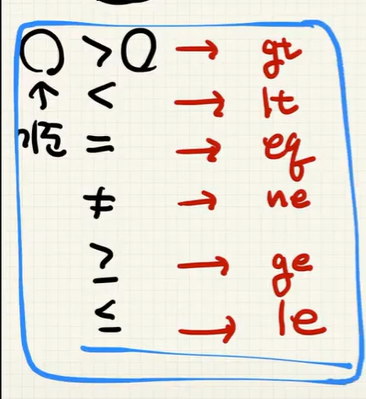 ○ > ○ → gt
↑ < → lt
기준 = → eq
≠ → ne
≥ → ge
≤ → le